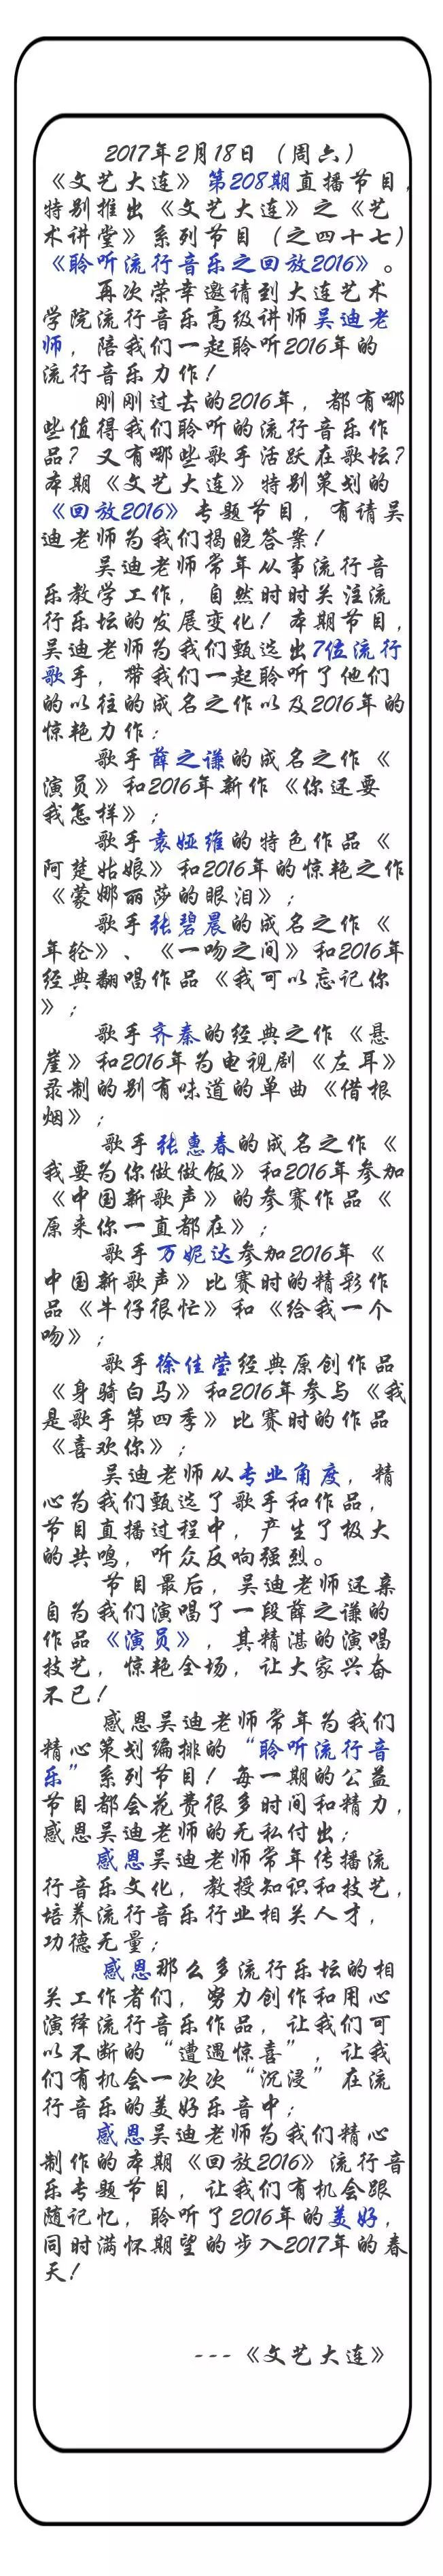 2017年2月18日（周六）
《文艺大连》第208期直播节目，
特别推出《文艺大连》之《艺
术讲堂》系列节目（之四十七）
《聆听流行音乐之回放2016》。
再次荣幸邀请到大连艺术
学院流行音乐高级讲师吴迪老
师，陪我们一起聆听2016年的
流行音乐力作！
刚刚过去的2016年，都有哪
些值得我们聆听的流行音乐作
品？又有哪些歌手活跃在歌坛？
本期《文艺大连》特别策划的
《回放2016》专题节目，有请吴
迪老师为我们揭晓答案！
吴迪老师常年从事流行音
乐教学工作，自然时时关注流
行乐坛的发展变化！本期节目，
吴迪老师为我们甄选出7位流行
歌手，带我们一起聆听了他们
的以往的成名之作以及2016年的
惊艳力作：
歌手薛之谦的成名之作《
演员》和2016年新作《你还要
我怎样》；
歌手袁娅维的特色作品《
阿楚姑娘》和2016年的惊艳之作
《蒙娜丽莎的眼泪》；
歌手张碧晨的成名之作《
年轮》、《一吻之间》和2016年
经典翻唱作品《我可以忘记你
》；
歌手齐秦的经典之作《悬
崖》和2016年为电视剧《左耳》
录制的别有味道的单曲《借根
烟》；
歌手张惠春的成名之作《
我要为你做做饭》和2016年参加
《中国新歌声》的参赛作品《
原来你一直都在》；
歌手万妮达参加2016年《
中国新歌声》比赛时的精彩作
品《牛仔很忙》和《给我一个
吻》；
歌手徐佳莹经典原创作品
《身骑白马》和2016年参与《我
是歌手第四季》比赛时的作品
《喜欢你》；
吴迪老师从专业角度，精
心为我们甄选了歌手和作品，
节目直播过程中，产生了极大
的共鸣，听众反响强烈。
节目最后，吴迪老师还亲
自为我们演唱了一段薛之谦的
作品《演员》，其精湛的演唱
技艺，惊艳全场，让大家兴奋
不已！
感恩吴迪老师常年为我们
精心策划编排的“聆听流行音
乐”系列节目！每一期的公益
节目都会花费很多时间和精力，
感恩吴迪老师的无私付出；
感恩吴迪老师常年传播流
行音乐文化，教授知识和技艺，
培养流行音乐行业相关人才，
功德无量；
感恩那么多流行乐坛的相
关工作者们，努力创作和用心
演绎流行音乐作品，让我们可
以不断的“遭遇惊喜”，让我
们有机会一次次“沉浸”在流
行音乐的美好乐音中；
感恩吴迪老师为我们精心
制作的本期《回放2016》流行音
乐专题节目，让我们有机会跟
随记忆，聆听了2016年的美好，
同时满怀期望的步入2017年的春
天！
---《文艺大连》